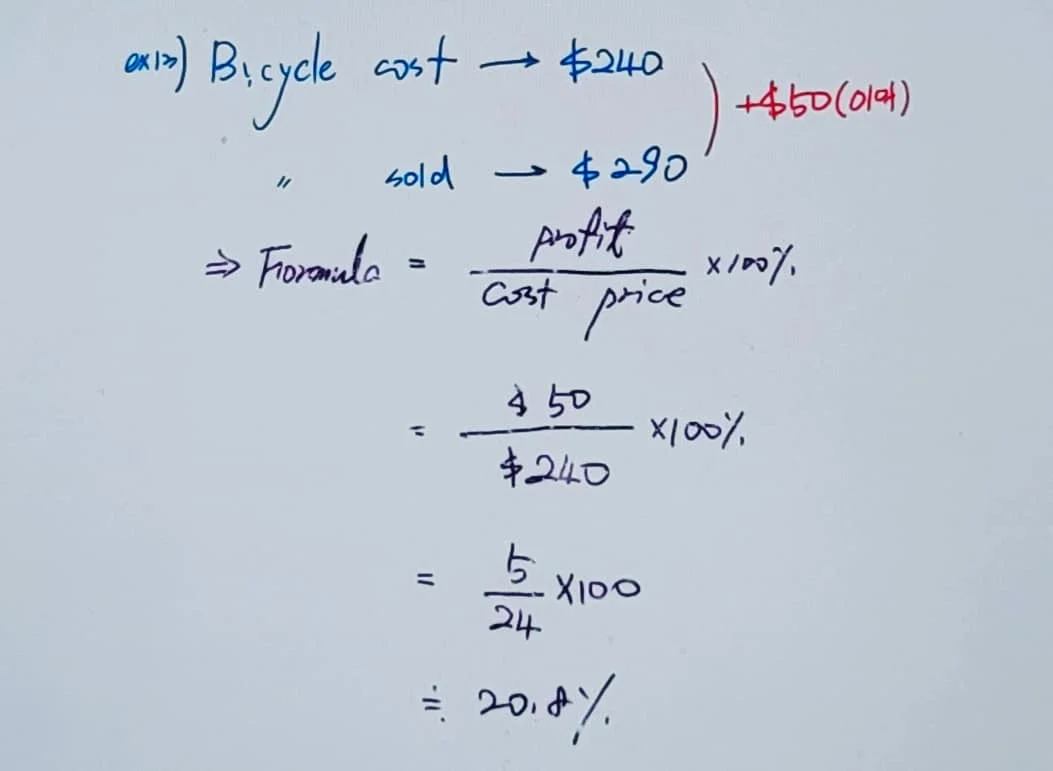 ex1>) Bicycle cost → $240
+$50(이익)
" sold → $290
⇒ Formula = profit / cost price ×100%
= $50 / $240 ×100%
= 5/24 ×100
≒ 20.8%